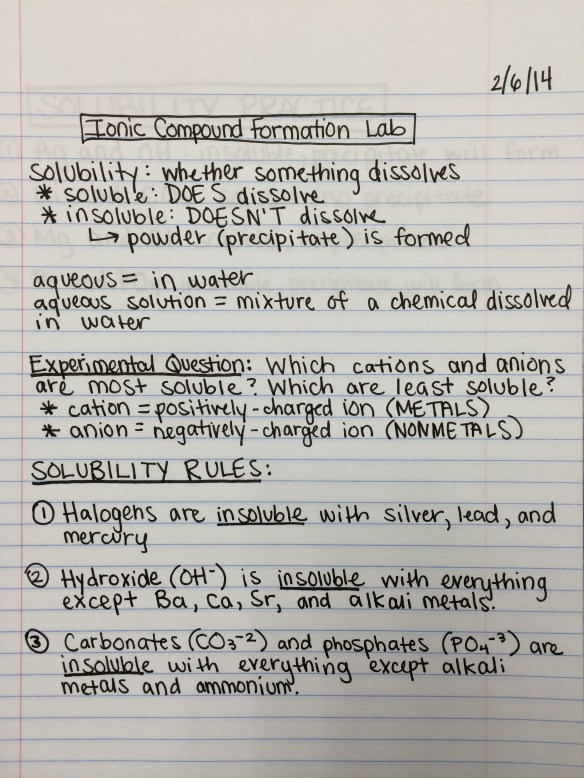 2/6/14
Ionic Compound Formation Lab
Solubility: whether something dissolves
* soluble: DOES dissolve
* insoluble: DOESN'T dissolve
↳ powder (precipitate) is formed
aqueous = in water
aqueous solution = mixture of a chemical dissolved
in water
Experimental Question: Which cations and anions
are most soluble? Which are least soluble?
* cation = positively-charged ion (METALS)
* anion = negatively-charged ion (NONMETALS)
SOLUBILITY RULES:
① Halogens are insoluble with silver, lead, and
mercury
② Hydroxide (OH⁻) is insoluble with everything
except Ba, Ca, Sr, and alkali metals.
③ Carbonates (CO₃⁻²) and phosphates (PO₄⁻³) are
insoluble with everything except alkali
metals and ammonium.
SOLUBILITY PRACTICE